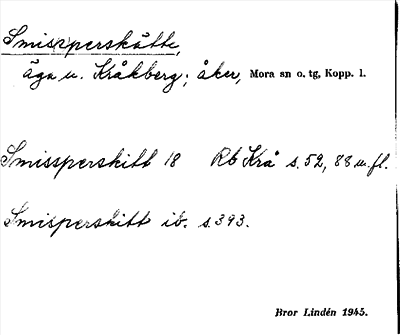 Smissperskitte,
äga u. Kråkberg; åker, Mora sn o. tg, Kopp. l.
Smissperskitt 18 Rb Krå s. 52, 88 m. fl.
Smisperskitt ib. s. 393.
Bror Lindén 1945.